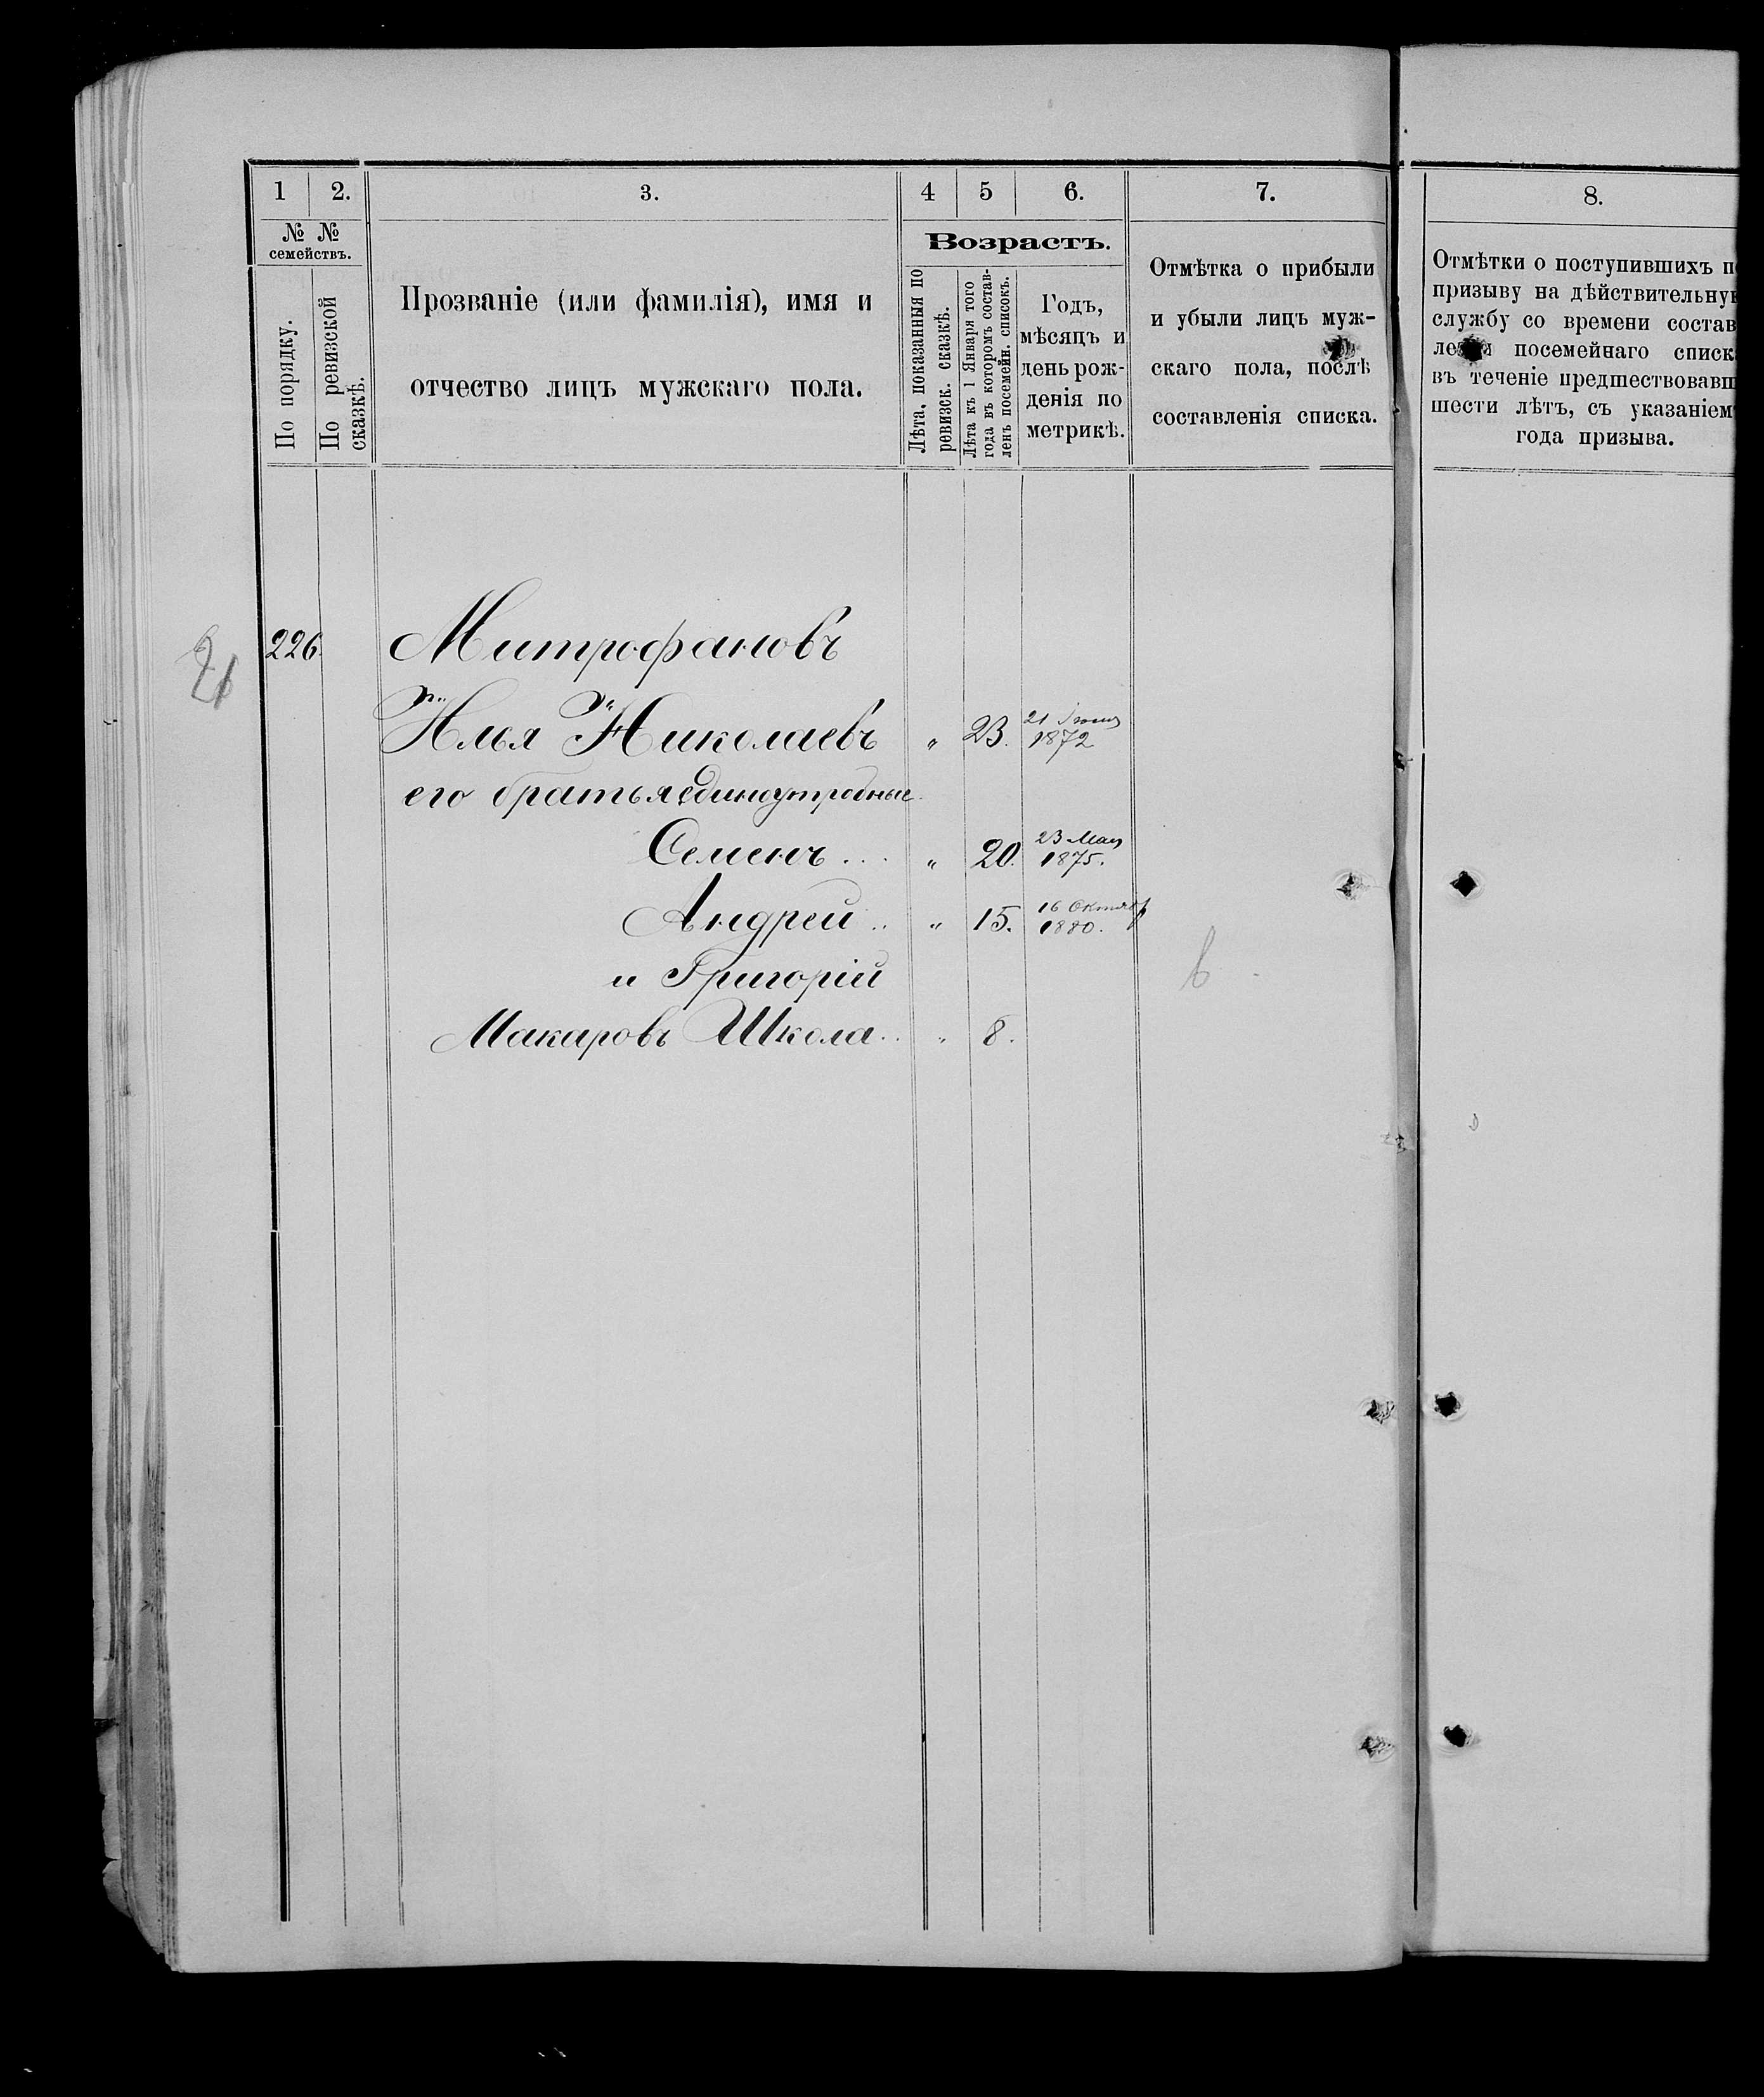 1 2. 3. 4 5 6. 7. 8.
№ №
семействъ.
По порядку.
По ревизской
сказкѣ.
Прозваніе (или фамилія), имя и
отчество лицъ мужскаго пола.
Возрастъ.
Лѣта, показанныя по
ревизск. сказкѣ.
Лѣта къ 1 Января того
года въ которомъ состав-
ленъ посемейн. списокъ.
Годъ,
мѣсяцъ и
день рож-
денія по
метрикѣ.
Отмѣтка о прибыли
и убыли лицъ муж-
скаго пола, послѣ
составленія списка.
Отмѣтки о поступившихъ п
призыву на дѣйствительну
службу со времени состав
посемейнаго списк
въ теченіе предшествовавш
шести лѣтъ, съ указаніем
года призыва.
226. Митрофановъ
Илья Николаевъ " 23. 21 1872
его братья единоутробные
Семенъ... " 20. 23 Мая 1875.
Андрей.. " 15. 16 Октября 1880.
и Григорій
Макаровъ Школа.. " 8.